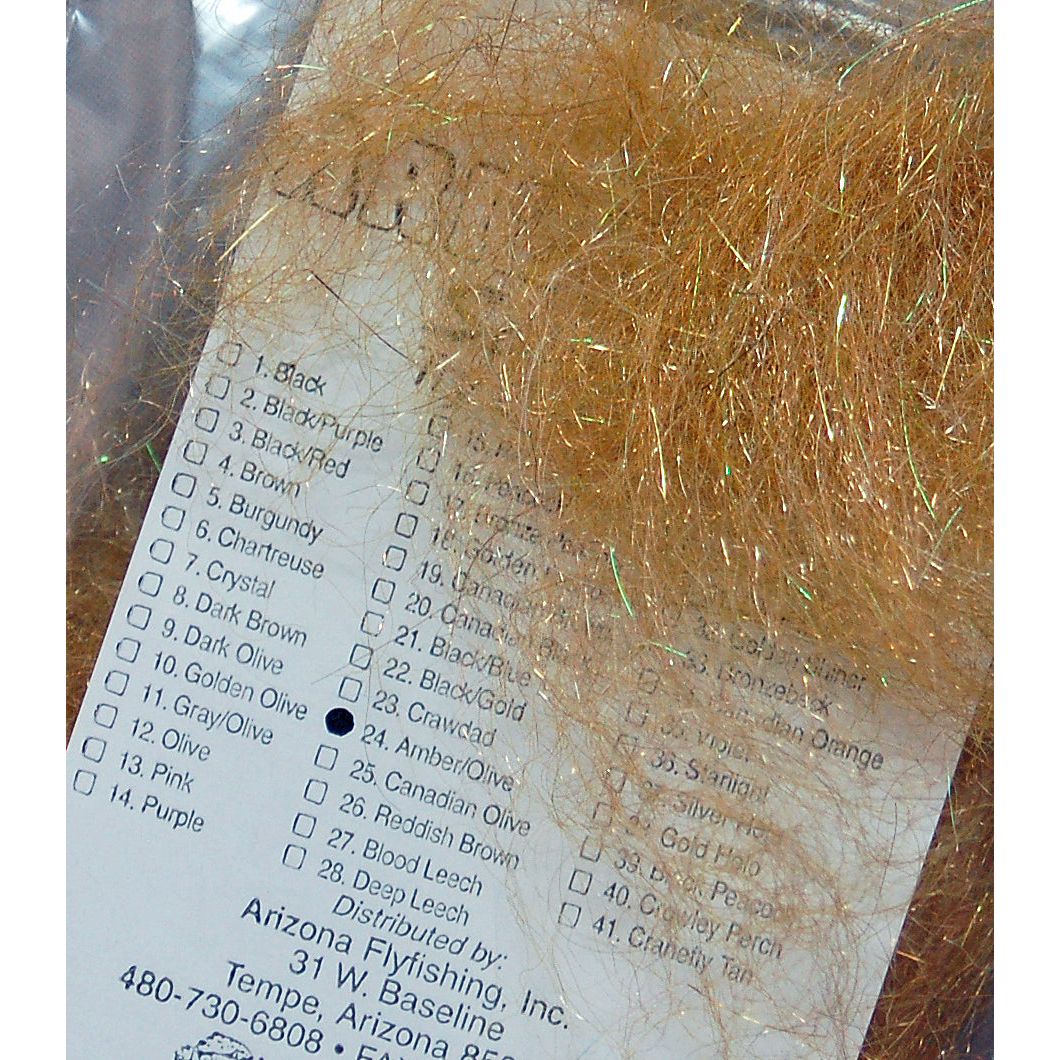 1. Black
2. Black/Purple
3. Black/Red
4. Brown
5. Burgundy
6. Chartreuse
7. Crystal
8. Dark Brown
9. Dark Olive
10. Golden Olive
11. Gray/Olive
12. Olive
13. Pink
14. Purple
15.
16.
17. Bronze
18. Golden
19. Canadian Brown
20. Canadian Black
21. Black/Blue
22. Black/Gold
23. Crawdad
24. Amber/Olive
25. Canadian Olive
26. Reddish Brown
27. Blood Leech
28. Deep Leech
32. Golden Shiner
33. Bronzeback
Canadian Orange
35. Violet
36. Starlight
37. Silver
Gold Holo
Peacock
40. Crowley Perch
41. Cranefly Tan
Distributed by:
Arizona Flyfishing, Inc.
31 W. Baseline
Tempe, Arizona
480-730-6808 •